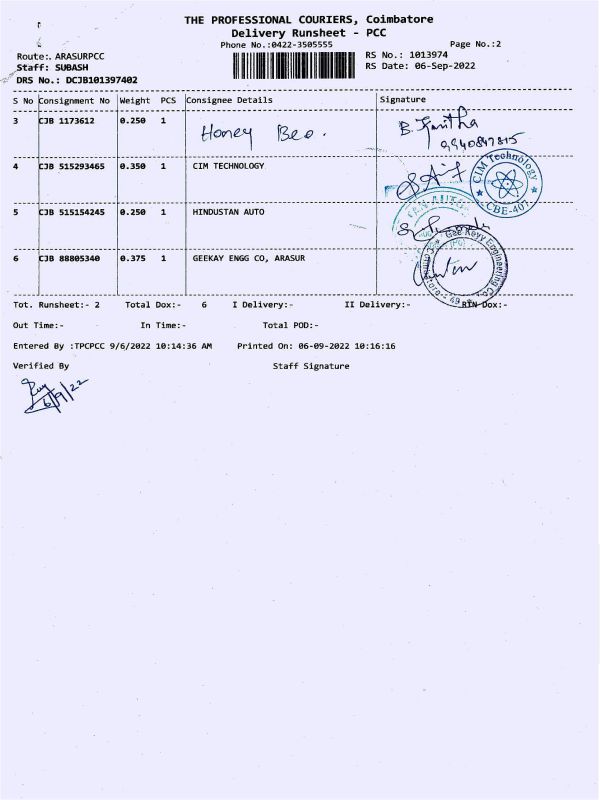 THE PROFESSIONAL COURIERS, Coimbatore
Delivery Runsheet - PCC
Phone No.:0422-3505555 Page No.:2
Route:. ARASURPCC RS No.: 1013974
Staff: SUBASH RS Date: 06-Sep-2022
DRS No.: DCJB101397402
S No Consignment No Weight PCS Consignee Details Signature
3 CJB 1173612 0.250 1 Honey Bee. B.
9940847815
4 CJB 515293465 0.350 1 CIM TECHNOLOGY
CIM Technology
CBE-407
5 CJB 515154245 0.250 1 HINDUSTAN AUTO
6 CJB 88805340 0.375 1 GEEKAY ENGG CO, ARASUR
Gee Keyy Engineering Co
Tot. Runsheet:- 2 Total Dox:- 6 I Delivery:- II Delivery:- RTN Dox:-
Out Time:- In Time:- Total POD:-
Entered By :TPCPCC 9/6/2022 10:14:36 AM Printed On: 06-09-2022 10:16:16
Verified By Staff Signature
6/9/22